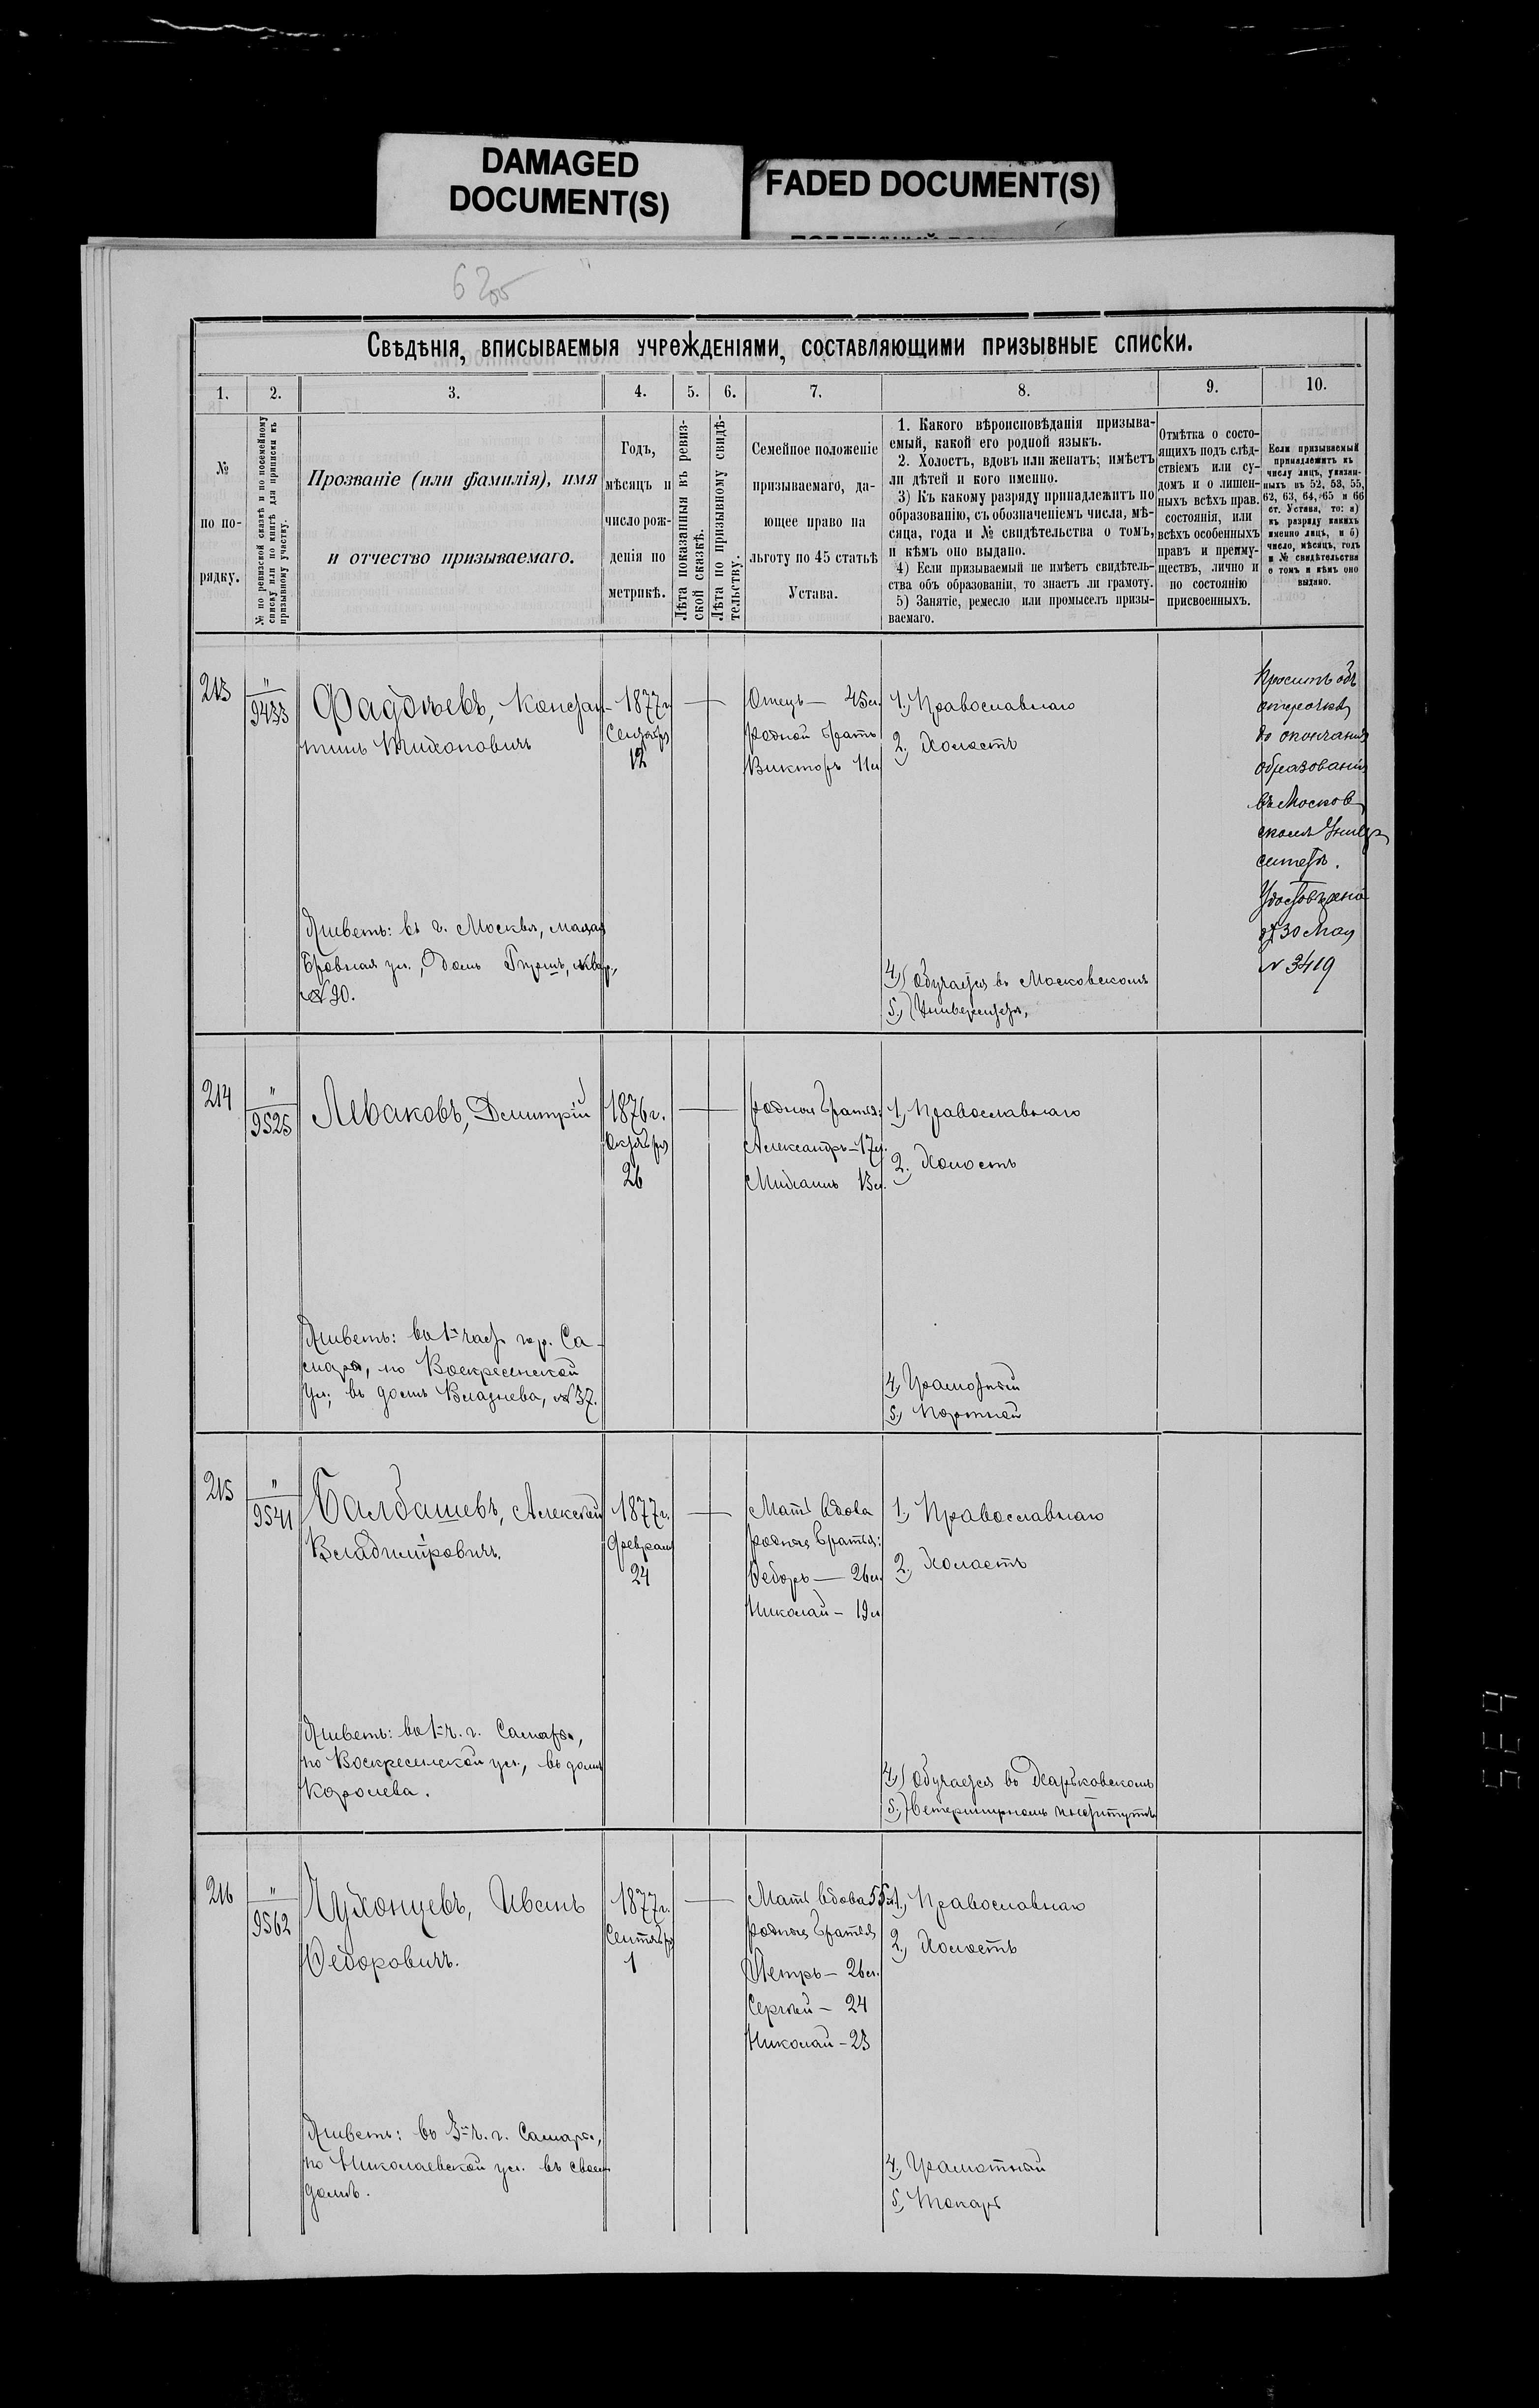 DAMAGED
DOCUMENT(S)
FADED DOCUMENT(S)
Свѣдѣнія, вписываемыя учрежденіями, составляющими призывные списки.
1. 2. 3. 4. 5. 6. 7. 8. 9. 10.
№
по по-
рядку.
№ по ревизской сказкѣ и по посемейному
списку или по книгѣ для приписки къ
призывному участку.
Прозваніе (или фамилія), имя
и отчество призываемаго.
Годъ,
мѣсяцъ и
число рож-
денія по
метрикѣ.
Лѣта показанныя въ ревиз-
ской сказкѣ.
Лѣта по призывному свидѣ-
тельству.
Семейное положеніе
призываемаго, да-
ющее право на
льготу по 45 статьѣ
Устава.
1. Какого вѣроисповѣданія призыва-
емый, какой его родной языкъ.
2. Холостъ, вдовъ или женатъ; имѣетъ
ли дѣтей и кого именно.
3) Къ какому разряду принадлежитъ по
образованію, съ обозначеніемъ числа, мѣ-
сяца, года и № свидѣтельства о томъ,
и кѣмъ оно выдано.
4) Если призываемый не имѣетъ свидѣтель-
ства объ образованіи, то знаетъ ли грамоту.
5) Занятіе, ремесло или промыселъ призы-
ваемаго.
Отмѣтка о состо-
ящихъ подъ слѣд-
ствіемъ или су-
домъ и о лишен-
ныхъ всѣхъ прав.
состоянія, или
всѣхъ особенныхъ
правъ и преиму-
ществъ, лично и
по состоянію
присвоенныхъ.
Если призываемый
принадлежитъ къ
числу лицъ, указан-
ныхъ въ 52, 53, 55,
62, 63, 64, 65 и 66
ст. Устава, то: а)
къ разряду какихъ
именно лицъ, и б)
число, мѣсяцъ, годъ
и № свидѣтельства
о томъ и кѣмъ оно
выдано.
213
"
9433
Фадѣевъ, Констан-
тинъ Тихоновичъ
Живетъ: въ г. Москвѣ, малая
Бровная ул., домъ Гиршъ, квар.,
№ 90.
1877г.
Сентября
12
Отецъ — 45 л.
родной братъ
Викторъ 11 л
1., Православнаго
2., Холостъ
4,) Обучается въ Московскомъ
5.,) Университетѣ,
Проситъ объ
отсрочкѣ
до окончанія
образованія
въ Москов
скомъ Универ
ситетѣ.
от 30 Мая
№ 3419
214
"
9525
Леваковъ, Дмитрій
Живетъ: во 1й части гор. Са-
марѣ, по Воскресенской
ул., въ домѣ № 37.
1876г.
Октября
26
родные братья:
Александръ — 17 л.
Михаилъ 13 л.
1., Православнаго
2., Холостъ
4., Грамотный
5., Портной
215
"
9541
Балбашевъ, Алексѣй
Владиміровичъ.
Живетъ: во 1й ч. г. Самарѣ,
по Воскресенской ул., въ домѣ
Королева.
1877г.
Февраля
24
Мать вдова
родные братья:
Ѳедоръ — 26 л.
Николай — 19 л
1., Православнаго
2., Холостъ
4.,) Обучается въ Харьковскомъ
5.,) Ветеринарномъ институтѣ
216
"
9562
Чухонцевъ, Иванъ
Ѳедоровичъ.
Живетъ: во 3й ч. г. Самарѣ,
по Николаевской ул. въ своемъ
домѣ.
1877г.
Сентября
1
Мать вдова 55 л
родные братья
Петръ — 26 л.
Сергѣй — 24
Николай — 23
1., Православнаго
2., Холостъ
4., Грамотный
5., Токарь